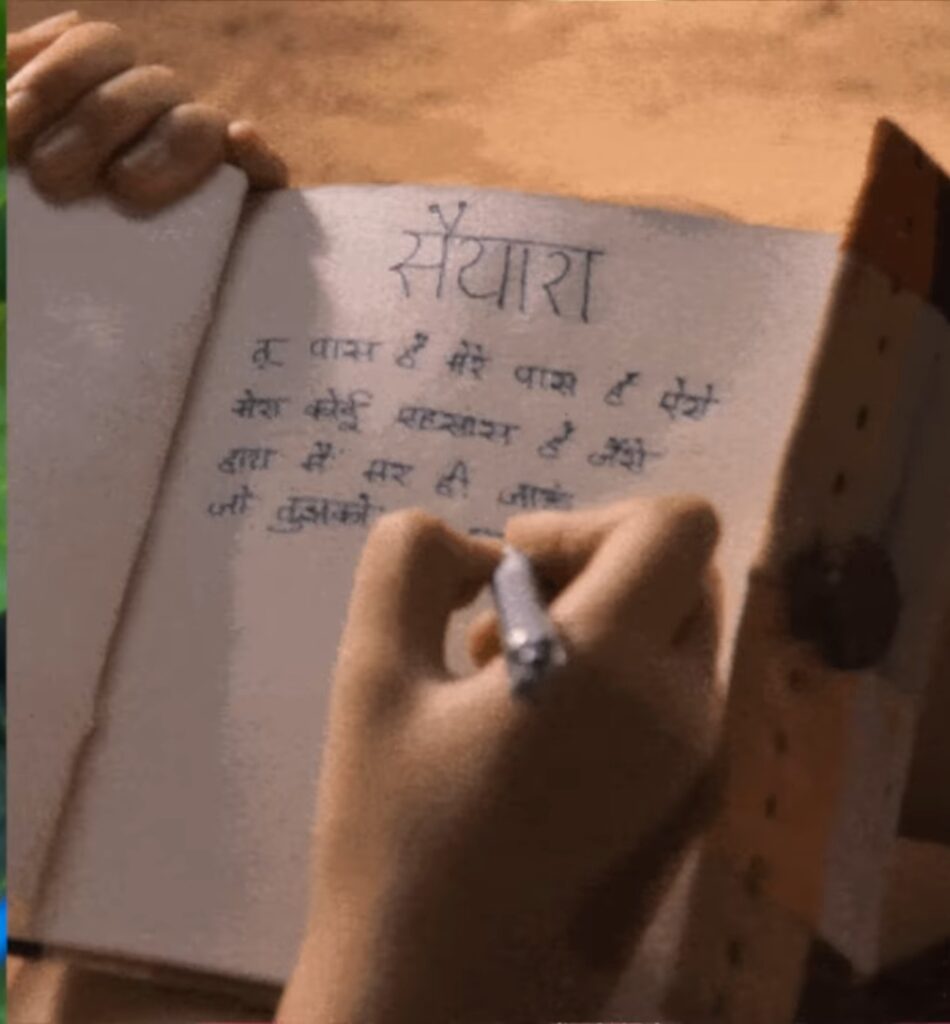 सैयारा
तू पास है मेरे पास है ऐसे
मेरा कोई एहसास है जैसे
हाय मैं मर ही जाऊं
जो तुझको